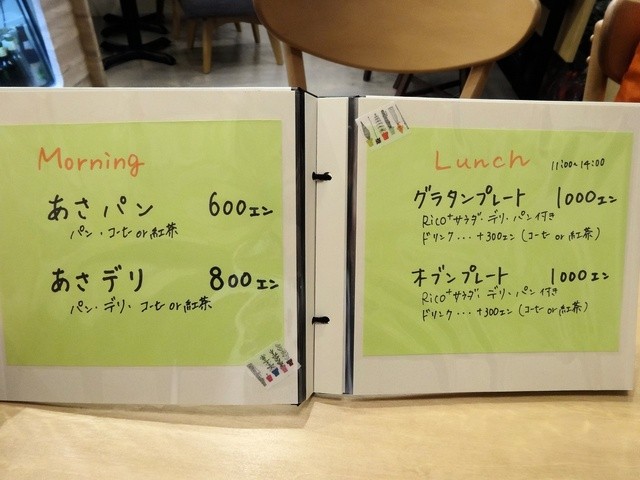 Morning
あさパン 600エン
パン・コーヒー or 紅茶
あさデリ 800エン
パン・デリ・コーヒー or 紅茶
Lunch 11:00~14:00
グラタンプレート 1000エン
Rico+サラダ・デリ・パン付き
ドリンク・・・+300エン (コーヒー or 紅茶)
オブンプレート 1000エン
Rico+サラダ・デリ・パン付き
ドリンク・・・+300エン (コーヒー or 紅茶)